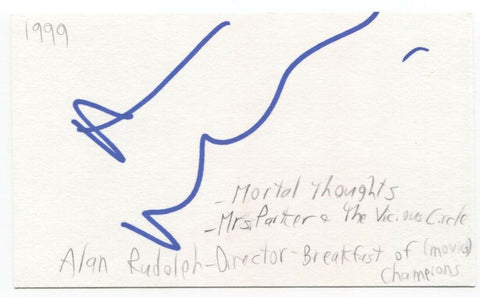 1999
- Mortal Thoughts
- Mrs. Parker & The Vicious Circle
Alan Rudolph - Director - Breakfast of (movie)
Champions